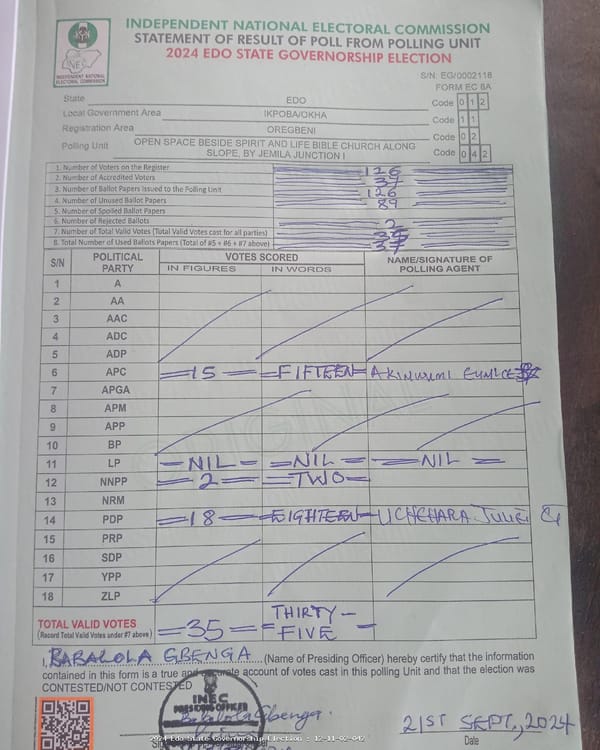 INDEPENDENT NATIONAL ELECTORAL COMMISSION
STATEMENT OF RESULT OF POLL FROM POLLING UNIT
2024 EDO STATE GOVERNORSHIP ELECTION
INEC
INDEPENDENT NATIONAL ELECTORAL COMMISSION
S/N: EG/0002118
FORM EC 8A
State EDO Code 0 1 2
Local Government Area IKPOBA/OKHA Code 1 1
Registration Area OREGBENI Code 0 2
Polling Unit OPEN SPACE BESIDE SPIRIT AND LIFE BIBLE CHURCH ALONG SLOPE, BY JEMILA JUNCTION I Code 0 4 2
1. Number of Voters on the Register 126
2. Number of Accredited Voters 37
3. Number of Ballot Papers Issued to the Polling Unit 126
4. Number of Unused Ballot Papers 89
5. Number of Spoiled Ballot Papers
6. Number of Rejected Ballots 2
7. Number of Total Valid Votes (Total Valid Votes cast for all parties) 35
8. Total Number of Used Ballots Papers (Total of #5 + #6 + #7 above) 37
S/N POLITICAL PARTY VOTES SCORED NAME/SIGNATURE OF POLLING AGENT
IN FIGURES IN WORDS
1 A
2 AA
3 AAC
4 ADC
5 ADP
6 APC =15= =FIFTEEN= AKINWUMI EUNICE
7 APGA
8 APM
9 APP
10 BP
11 LP =NIL= =NIL= =NIL=
12 NNPP =2= =TWO=
13 NRM
14 PDP =18= =EIGHTEEN= UCHCHARA JULIET
15 PRP
16 SDP
17 YPP
18 ZLP
TOTAL VALID VOTES =35= =THIRTY-FIVE=
(Record Total Valid Votes under #7 above)
I, BABALOLA GBENGA (Name of Presiding Officer) hereby certify that the information
contained in this form is a true and accurate account of votes cast in this polling Unit and that the election was
CONTESTED/NOT CONTESTED
INEC
PRESIDING OFFICER
Babalola Gbenga
21ST SEPT., 2024
2024 Edo State Governorship Election : 12-11-02-042
Date